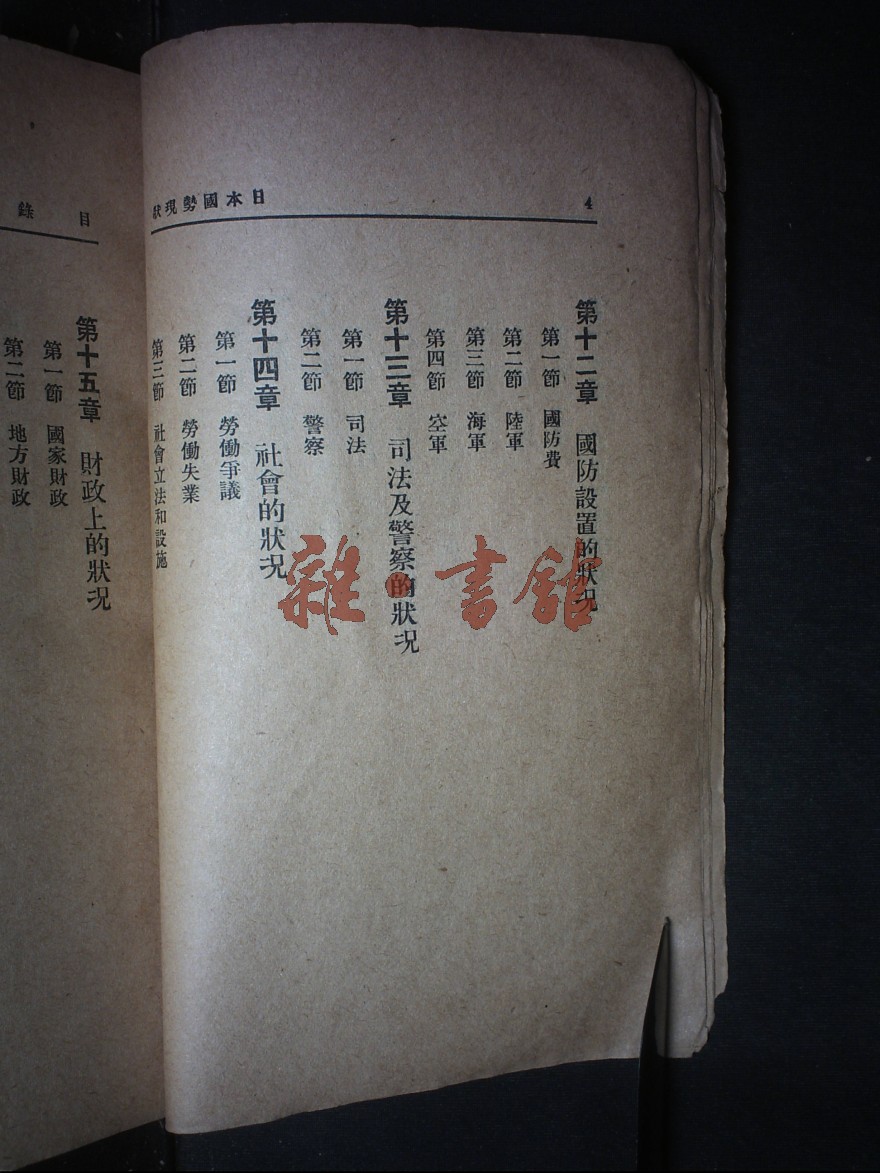 4
日本國勢現狀
第十二章 國防設置的狀況
第一節 國防費
第二節 陸軍
第三節 海軍
第四節 空軍
第十三章 司法及警察的狀況
第一節 司法
第二節 警察
第十四章 社會的狀況
第一節 勞働爭議
第二節 勞働失業
第三節 社會立法和設施
目錄
第十五章 財政上的狀況
第一節 國家財政
第二節 地方財政
雜書館